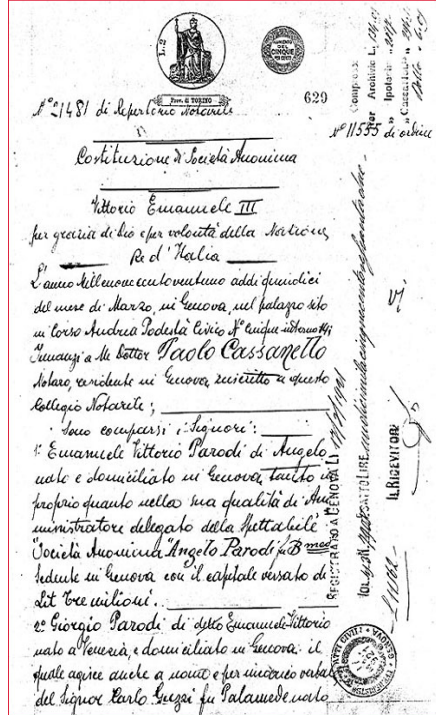 L. 2
Prov. di TORINO
AUMENTO DEL CINQUE PER CENTO
629
N° 21481 di Repertorio Notarile
N° 11555 di ordine
Costituzione di Società Anonima
Vittorio Emanuele III
per grazia di Dio e per volontà della Nazione
Re d'Italia
L'anno Millenovecentoventuno addì quindici
del mese di Marzo, in Genova, nel palazzo sito
in Corso Andrea Podestà Civico N° cinque interno
Innanzi a Me Dottor Paolo Cassanello
Notaro, residente in Genova, inscritto a questo
Collegio Notarile;
Sono comparsi i Signori:
1° Emanuele Vittorio Parodi di Angelo
nato e domiciliato in Genova, tanto in
proprio quanto nella sua qualità di Am
ministratore delegato della Spettabile
"Società Anonima "Angelo Parodi fu Bmeo
sedente in Genova con il capitale versato di
Lit Tremilioni.
2° Giorgio Parodi di detto Emanuele Vittorio
nato a Venezia, e domiciliato in Genova: il
quale agisce anche a nome e per incarico verbale
del Signor Carlo Guzzi fu Palamede nato
Per Archivio L.
" Ipoteche "
REGISTRATO A GENOVA LI
VOL.
LIRE
IL RICEVITORE
ATTI CIVILI
GENOVA